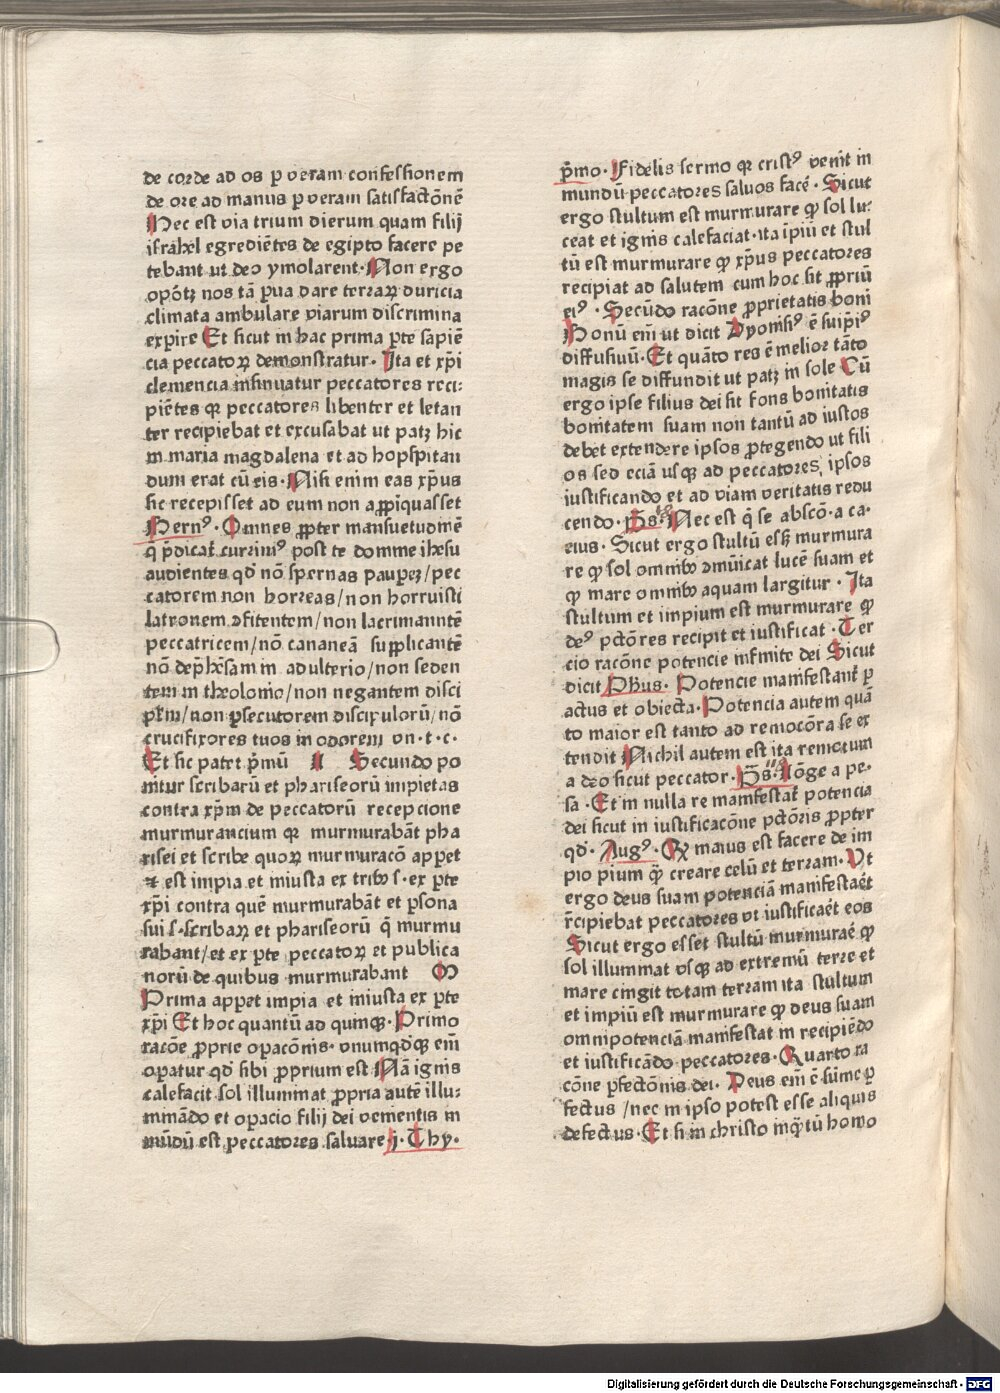 de corde ad os ꝑ veram confessionem
de ore ad manus ꝑ veram satisfactōnē
Hec est via trium dierum quam filij
israhel egrediētes de egipto facere pe
tebant ut deo ymolarent· Non ergo
opōtꝫ nos tā ꝑua dare terraꝝ duricia
climata ambulare viarum discrimina
expire Et sicut in hac prima ꝑte sapiē
cia peccatoꝝ demonstratur· Ita et xp̄i
clemencia insinuatur peccatores reci:
piētes qꝛ peccatores libenter et letan
ter recipiebat et excusabat ut patꝫ hic
in maria magdalena et ad hospitan
dum erat cū eis· Nisi enim eas xp̄us
sic recepisset ad eum non aꝓpīquasset
Bernꝰ· Omnes ꝓpter mansuetudinē
q̄ p̄dicat̄ currimꝰ post te domine ihesu
audientes qd̄ nō spernas pauperꝫ/pec
catorem non horreas/non horruisti
latronem ꝯfitentem/non lacrimantē
peccatricem/nō cananeā supplicantē
nō dep̄hēsam in adulterio/non seden
tem in theolonio/non negantem disci
pl̄m/non ꝑsecutorem discipulorū/nō
crucifixores tuos in odorem vn·t·c·
Et sic patet p̄mū Secundo po
nitur scribarū et phariseorū impietas
contra xp̄m de peccatorū recepcione
murmurancium qꝛ murmurabāt pha
risei et scribe quoꝝ murmuracō appet
ꝙ est impia et iniusta ex tribꝰ s· ex ꝑte
xp̄i contra quē murmurabāt et ꝑsona
sui s·scribaꝝ et phariseorū q̄ murmu
rabant/et ex ꝑte peccatoꝝ et publica
norū de quibus murmurabant
Prima appet impia et iniusta ex ꝑte
xp̄i Et hoc quantū ad quinqꝫ· Primo
racōe ꝓprie opacōnis· vnumqd̄qꝫ em̄
opatur qd̄ sibi ꝓprium est Nā ignis
calefacit sol illuminat ꝓpria autē illu:
minādo et opacio filij dei venientis in
mūdū est peccatores saluare j· Thy·
p̄mo· Fidelis sermo qꝛ cristꝰ venīt in
mundū peccatores saluos facē· Sicut
ergo stultum est murmurare ꝙ sol lu:
ceat et ignis calefaciat·ita īpiū et stul
tū est murmurare ꝙ xp̄us peccatores
recipiat ad salutem cum hoc sit ꝓpriū
eiꝰ· Secūdo racōne ꝓprietatis boni
Bonū em̄ ut dicit Dyonisꝰ ē suip̄iꝰ
diffusiuū· Et quāto res ē melior tāto
magis se diffundit ut patꝫ in sole Cū
ergo ipse filius dei sit fons bonitatis
bonitatem suam non tantū ad iustos
debet extendere ipsos ꝓtegendo ut fili
os sed eciā usqꝫ ad peccatores, ipsos
iustificando et ad viam veritatis redu
cendo· p̄s· Nec est q̄ se abscō· a ca·
eius· Sicut ergo stultū essꝫ murmura
re ꝙ sol omnibꝰ ꝯmūicat lucē suam et
ꝙ mare omnibꝰ aquam largitur· Ita
stultum et impium est murmurare ꝙ
deꝰ pctōres recipit et iustificat· Ter
cio racōne potencie infinite dei Sicut
dicit Ph̄us· Potencie manifestant̄ ꝑ
actus et obiecta· Potencia autem quā
to maior est tanto ad remocōra se ex
tendit Nichil autem est ita remotum
a deo sicut peccator· P̄s· Lōge a pe·
sa· Et in nulla re manifestat̄ potencia
dei sicut in iustificacōne pctōris ꝓpter
qd̄· Augꝰ· Qꝛ maius est facere de im
pio pium ꝙ̄ creare celū et terram· Vt
ergo deus suam potenciā manifestaēt
r̄cipiebat peccatores vt iustificaēt eos
Sicut ergo esset stultū murmuraē ꝙ
sol illuminat vsqꝫ ad extremū terre et
mare cingit totam terram ita stultum
et impiū est murmurare ꝙ deus suam
omnipotenciā manifestat in recipiēdo
et iustificādo peccatores· Quarto ra
cōne ꝑfectōnis dei· Deus em̄ ē sūme ꝑ
fectus/nec in ipso potest esse aliquis
defectus· Et si in christo inqͣtū homo
Digitalisierung gefördert durch die Deutsche Forschungsgemeinschaft - DFG